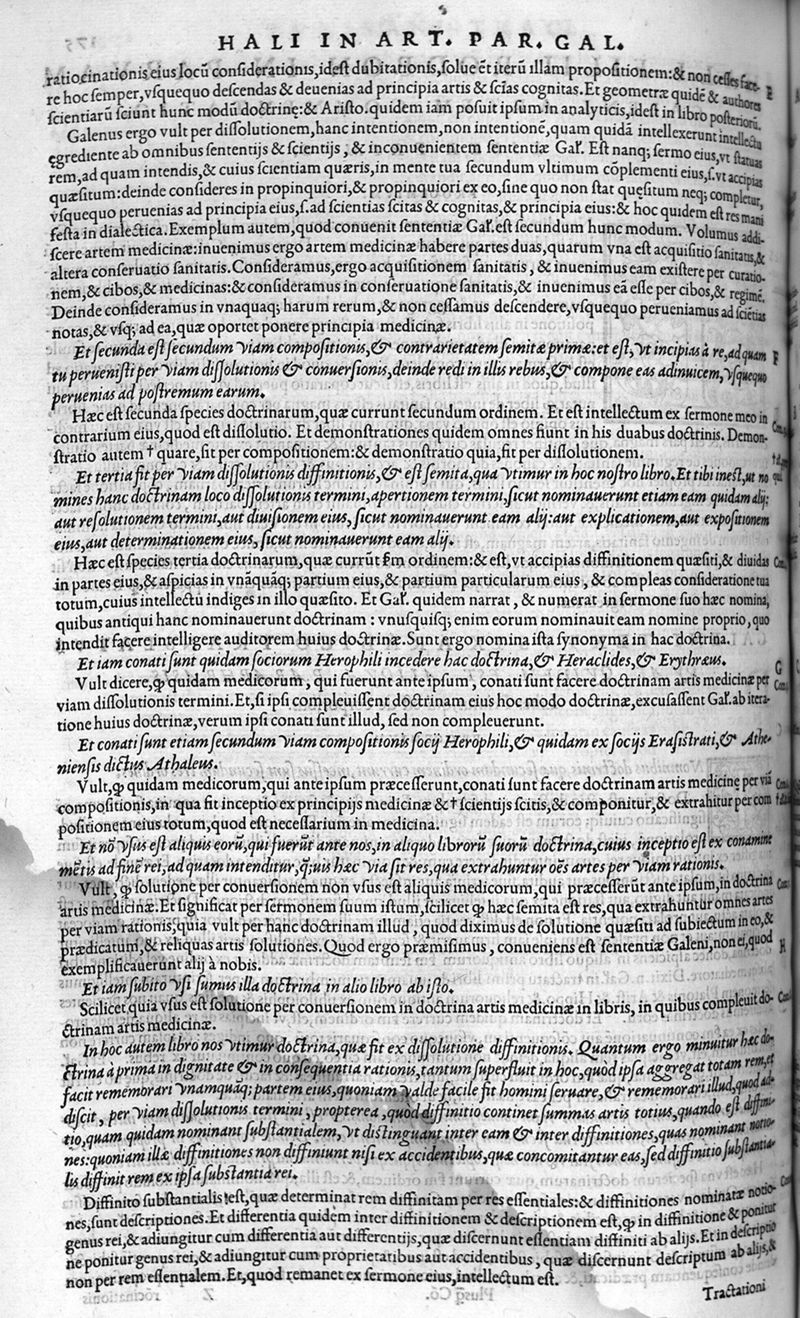 HALI IN ART. PAR. GAL.
ratiocinationis eius locũ considerationis, idest dubitationis, solue ẽt iterũ illam propositionem: & non cesses face-
re hoc semper, vsquequo descendas & deuenias ad principia artis & scĩas cognitas. Et geometræ quidẽ & authores
scientiarũ sciunt hunc modũ doctrinę: & Aristo. quidem iam posuit ipsum in analyticis, idest in libro posteriorũ.
Galenus ergo vult per dissolutionem, hanc intentionem, non intentionẽ, quam quidã intellexerunt intellectu
egrediente ab omnibus sententijs & scientijs, & inconuenientem sententiæ Gal'. Est nanq; sermo eius, vt statuas
rem, ad quam intendis, & cuius scientiam quæris, in mente tua secundum vltimum cõplementi eius, s. vt accipias
quæsitum: deinde consideres in propinquiori, & propinquiori ex eo, sine quo non stat quęsitum neq; completur,
vsquequo peruenias ad principia eius, s. ad scientias scitas & cognitas, & principia eius: & hoc quidem est res mani
festa in dialectica. Exemplum autem, quod conuenit sententiæ Gal'. est secundum hunc modum. Volumus addi-
scere artem medicinæ: inuenimus ergo artem medicinæ habere partes duas, quarum vna est acquisitio sanitatis, &
altera conseruatio sanitatis. Consideramus, ergo acquisitionem sanitatis, & inuenimus eam existere per curatio-
nem, & cibos, & medicinas: & consideramus in conseruatione sanitatis, & inuenimus eã esse per cibos, & regimẽ.
Deinde consideramus in vnaquaq; harum rerum, & non cessamus descendere, vsquequo perueniamus ad sciẽtias
notas, & vsq; ad ea, quæ oportet ponere principia medicinæ.
Et secunda est secundum viam compositionis, & contrarietatem semitæ primæ: et est, vt incipias à re, ad quam F
tu peruenisti per viam dissolutionis & conuersionis, deinde redi in illis rebus, & compone eas adinuicem, vsquequo
peruenias ad postremum earum.
Hæc est secunda species doctrinarum, quæ currunt secundum ordinem. Et est intellectum ex sermone meo in
contrarium eius, quod est dissolutio. Et demonstrationes quidem omnes fiunt in his duabus doctrinis. Demon-
stratio autem † quare, fit per compositionem: & demonstratio quia, fit per dissolutionem.
Et tertia fit per viam dissolutionis diffinitionis, & est semita, qua vtimur in hoc nostro libro. Et tibi inest, ut no
mines hanc doctrinam loco dissolutionis termini, apertionem termini, sicut nominauerunt etiam eam quidam alij:
aut resolutionem termini, aut diuisionem eius, sicut nominauerunt eam alij: aut explicationem, aut expositionem
eius, aut determinationem eius, sicut nominauerunt eam alij.
Hæc est species tertia doctrinarum, quæ currũt sm̃ ordinem: & est, vt accipias diffinitionem quæsiti, & diuidas
in partes eius, & aspicias in vnãquãq; partium eius, & partium particularum eius, & compleas consideratione tua
totum, cuius intellectũ indiges in illo quæsito. Et Gal'. quidem narrat, & numerat in sermone suo hæc nomina,
quibus antiqui hanc nominauerunt doctrinam: vnusquisq; enim eorum nominauit eam nomine proprio, quo
intendit facere intelligere auditorem huius doctrinæ. Sunt ergo nomina ista synonyma in hac doctrina.
Et iam conati sunt quidam sociorum Herophili incedere hac doctrina, & Heraclides, & Erythræus. G
Vult dicere, ꝙ quidam medicorum, qui fuerunt ante ipsum, conati sunt facere doctrinam artis medicinæ per
viam dissolutionis termini. Et, si ipsi compleuissent doctrinam eius hoc modo doctrinæ, excusassent Gal'. ab itera-
tione huius doctrinæ, verum ipsi conati sunt illud, sed non compleuerunt.
Et conati sunt etiam secundum viam compositionis socij Herophili, & quidam ex socijs Erasistrati, & Athe-
niensis dictus Athaleus.
Vult, ꝙ quidam medicorum, qui ante ipsum præcesserunt, conati sunt facere doctrinam artis medicinę per viã
compositionis, in qua fit inceptio ex principijs medicinæ & † scientijs scitis, & componitur, & extrahitur per com
positionem eius totum, quod est necessarium in medicina.
Et nõ vsus est aliquis eorũ, qui fuerũt ante nos, in aliquo librorũ suorũ doctrina, cuius inceptio est ex conamine
mẽtis ad finẽ rei, ad quam intenditur, q; uis hæc via sit res, qua extrahuntur oẽs artes per viam rationis.
Vult, ꝙ solutione per conuersionem non vsus est aliquis medicorum, qui præcesserũt ante ipsum, in doctrina
artis medicinæ. Et significat per sermonem suum istum, scilicet ꝙ hæc semita est res, qua extrahuntur omnes artes
per viam rationis; quia vult per hanc doctrinam illud, quod diximus de solutione quæsiti ad subiectum in eo, &
prædicatum, & reliquas artis solutiones. Quod ergo præmisimus, conueniens est sententiæ Galeni, non ei, quod H
exemplificauerunt alij à nobis.
Et iam subito vsi sumus illa doctrina in alio libro ab isto.
Scilicet quia vsus est solutione per conuersionem in doctrina artis medicinæ in libris, in quibus compleuit do-
ctrinam artis medicinæ.
In hoc autem libro nos vtimur doctrina, quæ fit ex dissolutione diffinitionis. Quantum ergo minuitur hæc do-
ctrina à prima in dignitate & in consequentia rationis, tantum superfluit in hoc, quòd ipsa aggregat totam rem, et
facit rememorari vnamquãq; partem eius, quoniam valde facile fit homini seruare, & rememorari illud, quod ad-
discit, per viam dissolutionis termini, propterea, quòd diffinitio continet summas artis totius, quando est diffini-
tio, quam quidam nominant substantialem, vt distinguant inter eam & inter diffinitiones, quas nominant notio-
nes: quoniam illæ diffinitiones non diffiniunt nisi ex accidentibus, quæ concomitantur eas, sed diffinitio substantia-
lis diffinit rem ex ipsa substantia rei.
Diffinito substantialis est, quæ determinat rem diffinitam per res essentiales: & diffinitiones nominatæ notio-
nes, sunt descriptiones. Et differentia quidem inter diffinitionem & descriptionem est, ꝙ in diffinitione & ponitur
genus rei, & adiungitur cum differentia aut differentijs, quæ discernunt essentiam diffiniti ab alijs. Et in descriptio
ne ponitur genus rei, & adiungitur cum proprietatibus aut accidentibus, quæ discernunt descriptum ab alijs, &
non per rem essentialem. Et, quod remanet ex sermone eius, intellectum est.
Tractationi